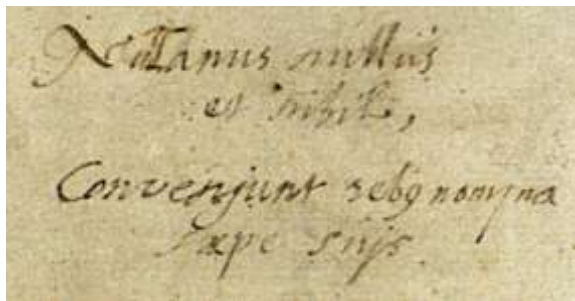 Nullanus nullus
et nihil,
Convenjunt reb9 nomjna
sæpe sujs